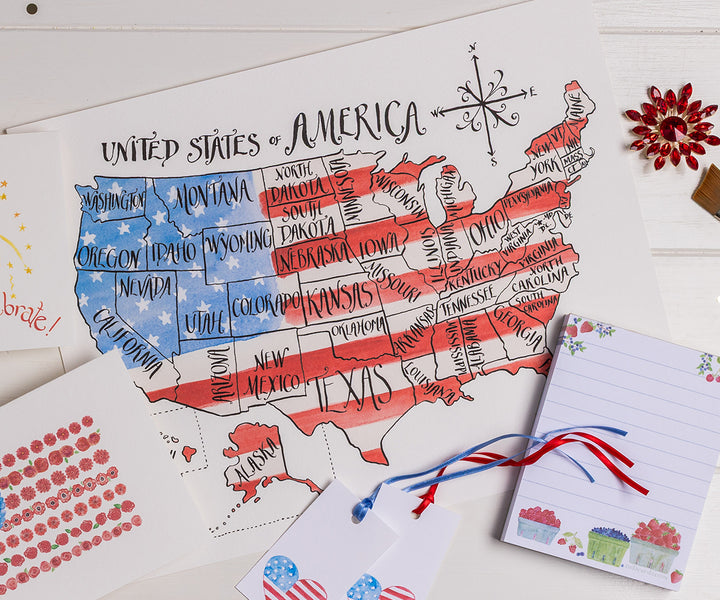 UNITED STATES of AMERICA
N
W
E
S
WASHINGTON
MONTANA
NORTH
DAKOTA
MINNESOTA
WISCONSIN
MICHIGAN
NEW
YORK
VT
MAINE
MASS
CT
OREGON
IDAHO
WYOMING
SOUTH
DAKOTA
NEBRASKA
IOWA
ILLINOIS
INDIANA
OHIO
PENNSYLVANIA
WEST
VIRGINIA
VIRGINIA
NEVADA
UTAH
COLORADO
KANSAS
MISSOURI
KENTUCKY
NORTH
CAROLINA
TENNESSEE
SOUTH
CAROLINA
CALIFORNIA
ARIZONA
NEW
MEXICO
OKLAHOMA
ARKANSAS
MISSISSIPPI
ALABAMA
GEORGIA
TEXAS
LOUISIANA
ALASKA